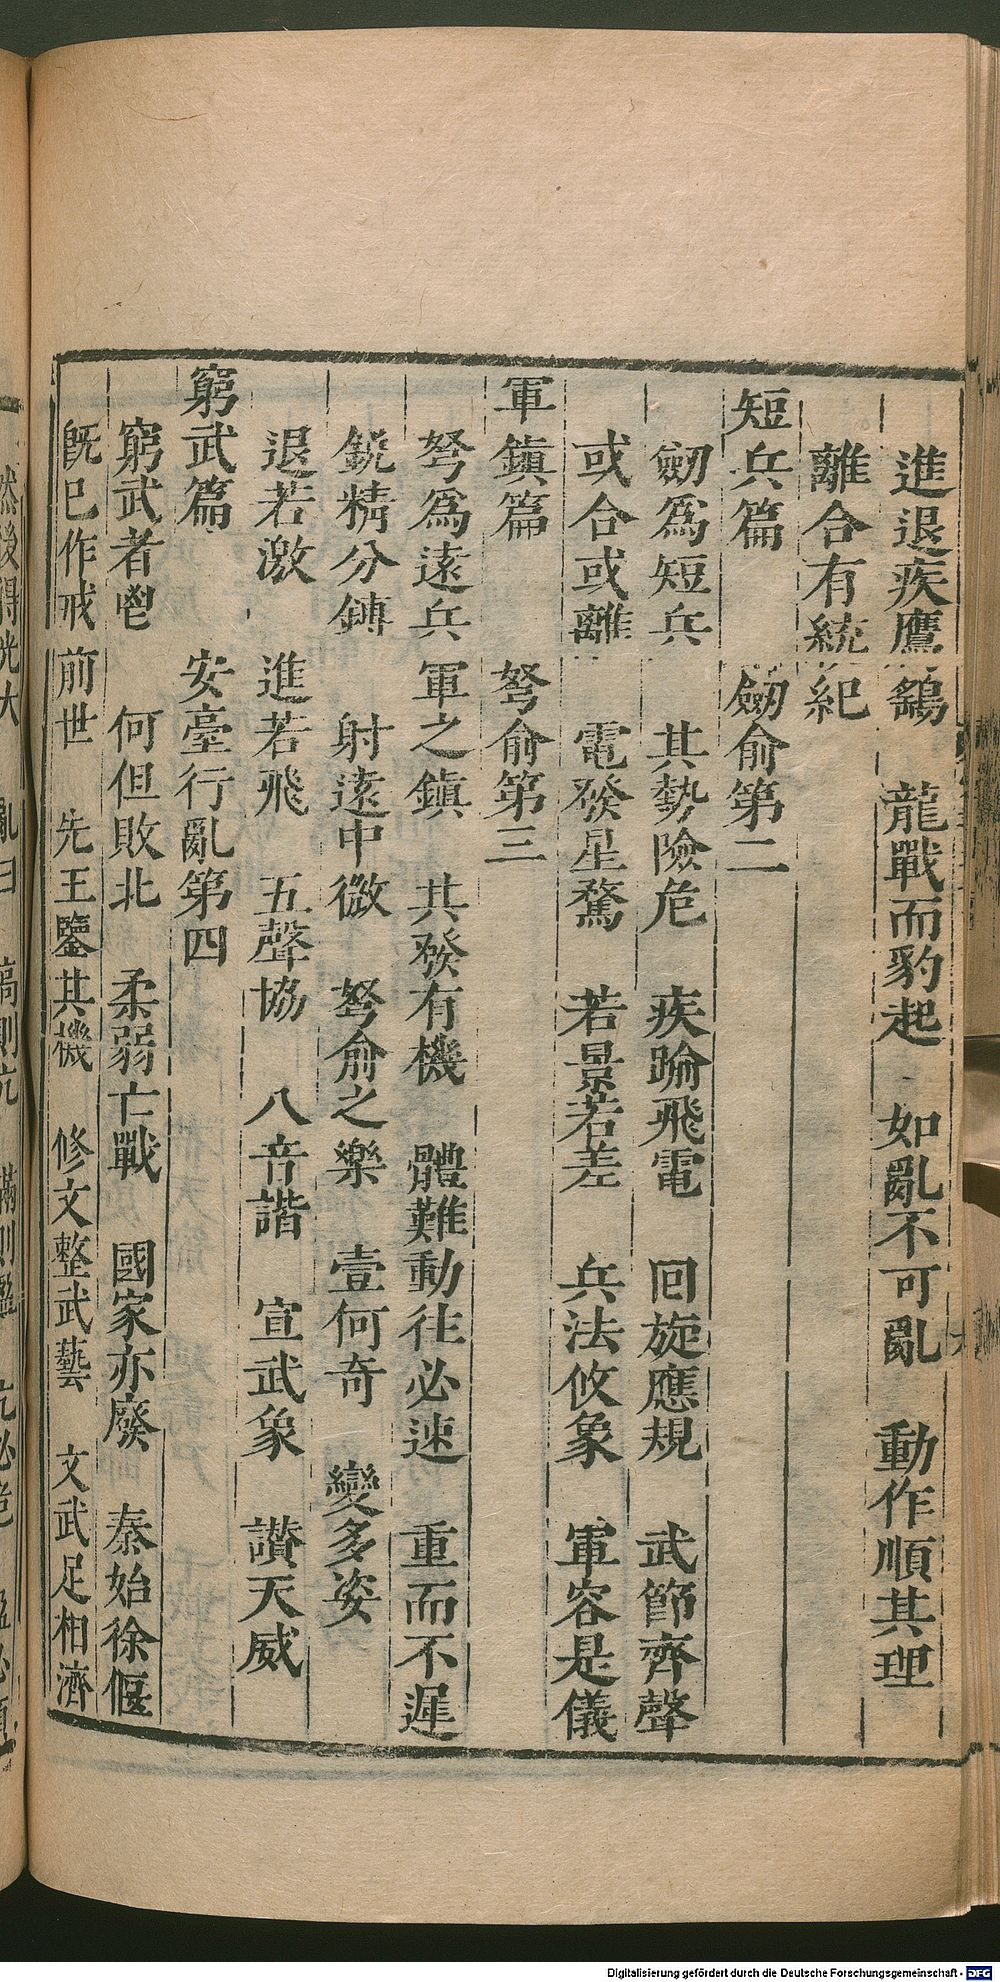 進退疾鷹鷂 龍戰而豹起 如亂不可亂 動作順其理
離合有統紀
短兵篇 劒俞第二
劒爲短兵 其勢險危 疾踰飛電 囘旋應規 武節齊聲
或合或離 電發星騖 若景若差 兵法攸象 軍容是儀
軍鎭篇 弩俞第三
弩爲遠兵 軍之鎭 其發有機 體難動往必速 重而不遲
銳精分鏄 射遠中微 弩俞之樂 壹何奇 變多姿
退若激 進若飛 五聲協 八音諧 宣武象 讃天威
窮武篇 安臺行亂第四
窮武者䘮 何但敗北 柔弱亡戰 國家亦廢 秦始徐偃
旣已作戒前世 先王鑒其機 修文整武藝 文武足相濟
然後得光大 亂曰 高則亢 滿則盈 亢必危 盈必傾
Digitalisierung gefördert durch die Deutsche Forschungsgemeinschaft - DFG